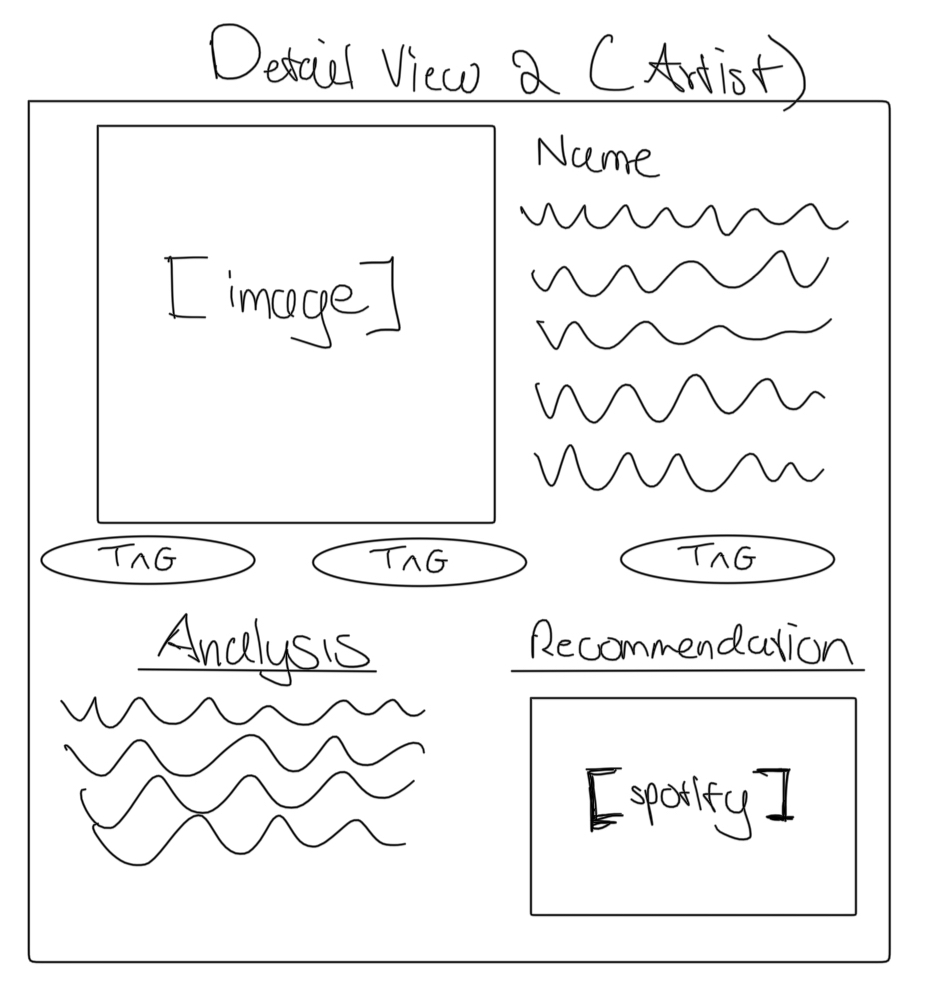 Detail View 2 (Artist)
Name
[image]
TAG TAG TAG
Analysis Recommendation
[spotify]